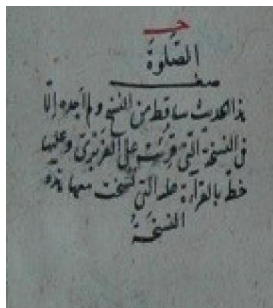 الصلوة
صف
هذا الحديث ساقط من النسخ ولم أجده إلا
فى النسخة التى قرئت على الفربرى وعليها
خطه بالقراءة عليه التى نسخت معها هذه
النسخة